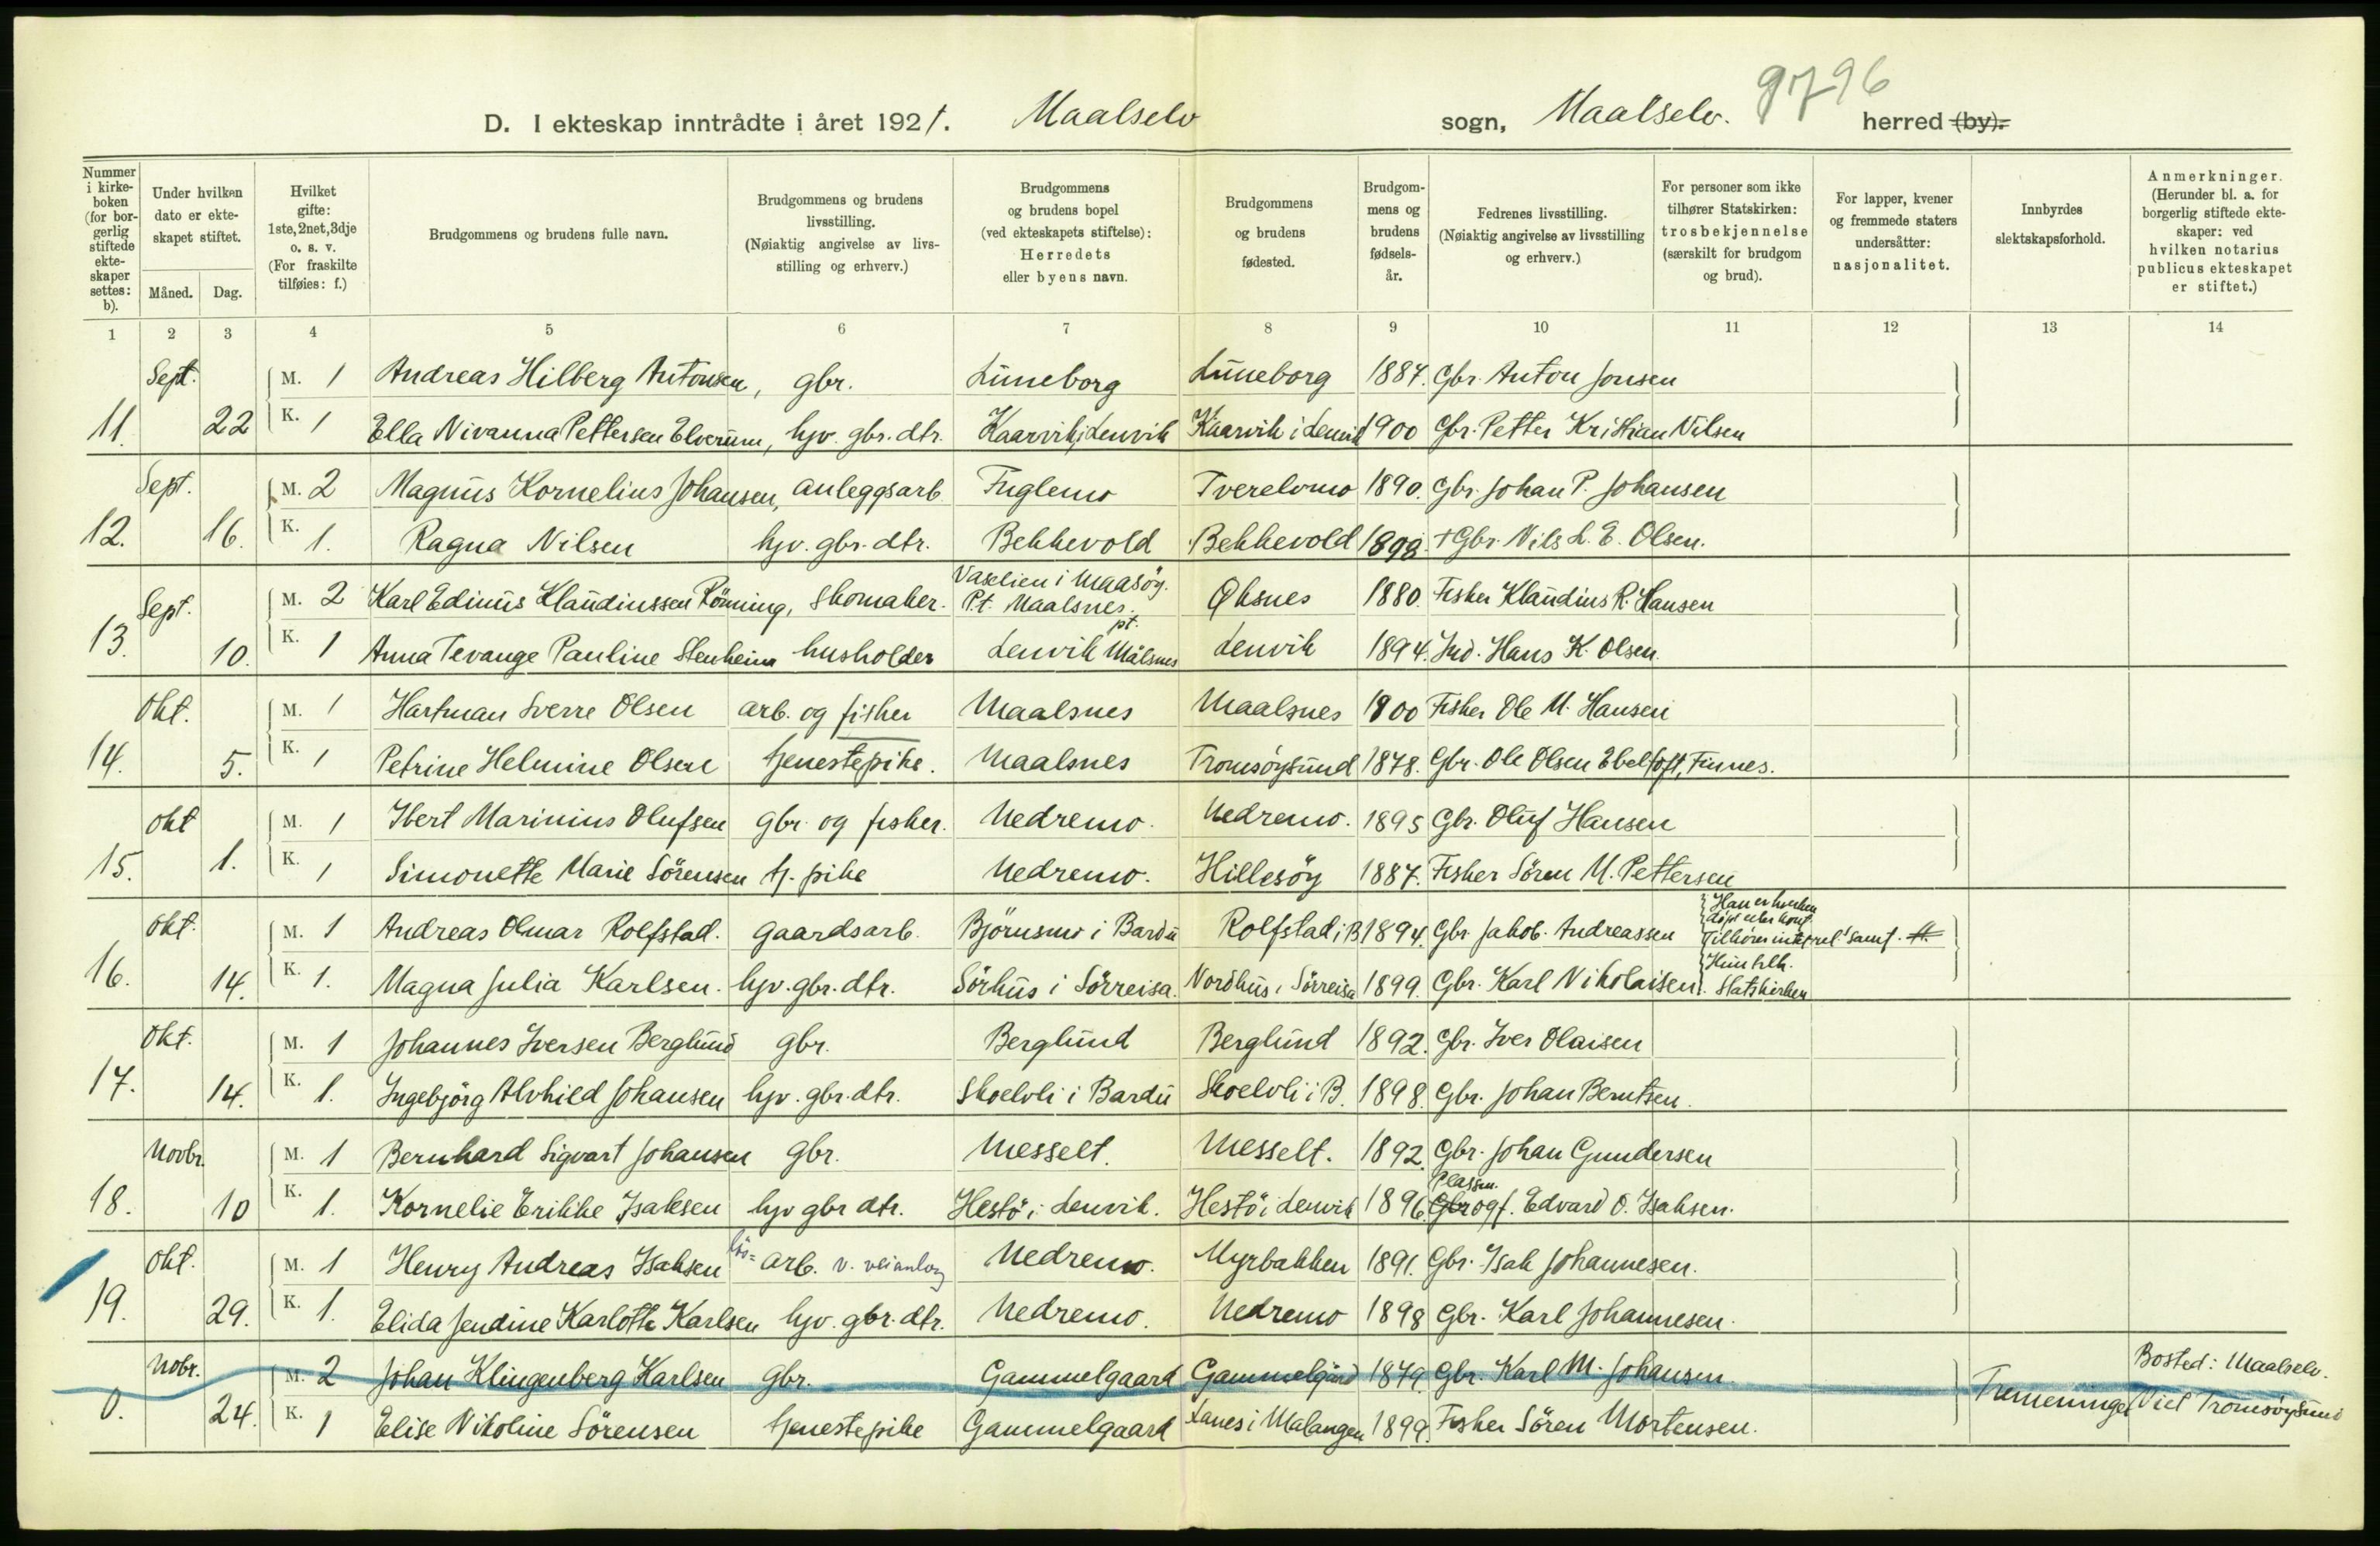 9796
D. I ekteskap inntrådte i året 1921. Maalselv sogn, Maalselv. herred (by).
Nummer i kirkeboken (for borgerlig stiftede ekteskaper settes: b).
Under hvilken dato er ekteskapet stiftet.
Måned. Dag.
Hvilket gifte: 1ste, 2net, 3dje o. s. v. (For fraskilte tilføies: f.)
Brudgommens og brudens fulle navn.
Brudgommens og brudens livsstilling. (Nøiaktig angivelse av livsstilling og erhverv.)
Brudgommens og brudens bopel (ved ekteskapets stiftelse): Herredets eller byens navn.
Brudgommens og brudens fødested.
Brudgommens og brudens fødselsår.
Fedrenes livsstilling. (Nøiaktig angivelse av livsstilling og erhverv.)
For personer som ikke tilhører Statskirken: trosbekjennelse (særskilt for brudgom og brud).
For lapper, kvener og fremmede staters undersåtter: nasjonalitet.
Innbyrdes slektskapsforhold.
Anmerkninger. (Herunder bl. a. for borgerlig stiftede ekteskaper: ved hvilken notarius publicus ekteskapet er stiftet.)
1 2 3 4 5 6 7 8 9 10 11 12 13 14
Sept. M. 1 Andreas Hilberg Antonsen, gbr. Lüneborg Lüneborg 1887. Gbr. Anton Jonsen
11. 22 K. 1 Ella Nivanna Pettersen Elverum, hjv. gbr. dtr. Kaarvik i Lenvik Kaarvik i Lenvik 1900 Gbr. Petter Kristian Nilsen
Sept. M. 2 Magnus Kornelius Johansen, anleggsarb. Fuglemo Tverelvmo 1890. Gbr. Johan P. Johansen
12. 16. K. 1. Ragna Nilsen hjv. gbr. dtr. Bekkevold Bekkevold 1898. + Gbr. Nils L. E. Olsen.
Sept. M. 2 Karl Edinus Klaudiussen Rönning, skomaker. Vaselien i Maasöy. P.t. Maalsnes. Øksnes 1880. Fisker Klaudius R. Hansen
13. 10. K. 1 Anna Tevange Pauline Stenheim husholder Lenvik pt. Målsnes Lenvik 1894. Ind. Hans K. Olsen.
Okt. M. 1 Hartman Sverre Olsen arb. og fisker Maalsnes Maalsnes 1900 Fisker Ole M. Hansen
14. 5. K. 1 Petrine Helmine Olsen tjenestepike. Maalsnes Tromsöysund 1878. Gbr. Ole Olsen Ebeltoft, Finnes.
Okt M. 1 Ibert Marinius Olufsen gbr. og fisker. Nedremo. Nedremo. 1895 Gbr. Oluf Hansen
15. 1. K. 1 Simonette Marie Sörensen tj. pike Nedremo. Hillesöy 1887. Fisker Sören M. Pettersen
Okt. M. 1 Andreas Olmar Rolfstad. gaardsarb. Björnsmo i Bardu Rolfstad i B. 1894. Gbr. Jakob Andreassen Han er hverken döpt eller konf. Tilhörer intet rel. samf.
16. 14. K. 1. Magna Julia Karlsen. hjv. gbr. dtr. Sörhus i Sörreisa. Nordhus i Sörreisa 1899. Gbr. Karl Nikolaisen. Hun tilh. Statskirken
Okt. M. 1 Johannes Iversen Berglund gbr. Berglund Berglund 1892. Gbr. Iver Olaisen
17. 14. K. 1. Ingebjörg Alvhild Johansen hjv. gbr. dtr. Skoelvli i Bardu Skoelvli i B. 1898. Gbr. Johan Berntsen.
Novbr. M. 1 Bernhard Sigvart Johansen gbr. Messelt. Messelt. 1892. Gbr. Johan Gundersen
18. 10 K. 1. Kornelie Erikke Isaksen hjv gbr dtr. Hestö i Lenvik. Hestö i Lenvik 1896. Plassm. Gbr og f. Edvard O. Isaksen.
Okt. M. 1 Henry Andreas Isaksen lös= arb. v. veianlæg Nedremo. Myrbakken 1891. Gbr. Isak Johannesen.
19. 29. K. 1. Elida Jendine Karlotte Karlsen hjv. gbr. dtr. Nedremo. Nedremo 1898 Gbr. Karl Johannesen.
Nobr. M. 2 Johan Klingenberg Karlsen gbr. Gammelgaard Gammelgård 1879. Gbr. Karl M. Johansen. Tremeninger Bosted: Maalselv.
0. 24. K. 1 Elise Nikoline Sörensen tjenestepike Gammelgaard Lanes i Malangen 1899. Fisker Sören Mortensen. Viet Tromsöysund